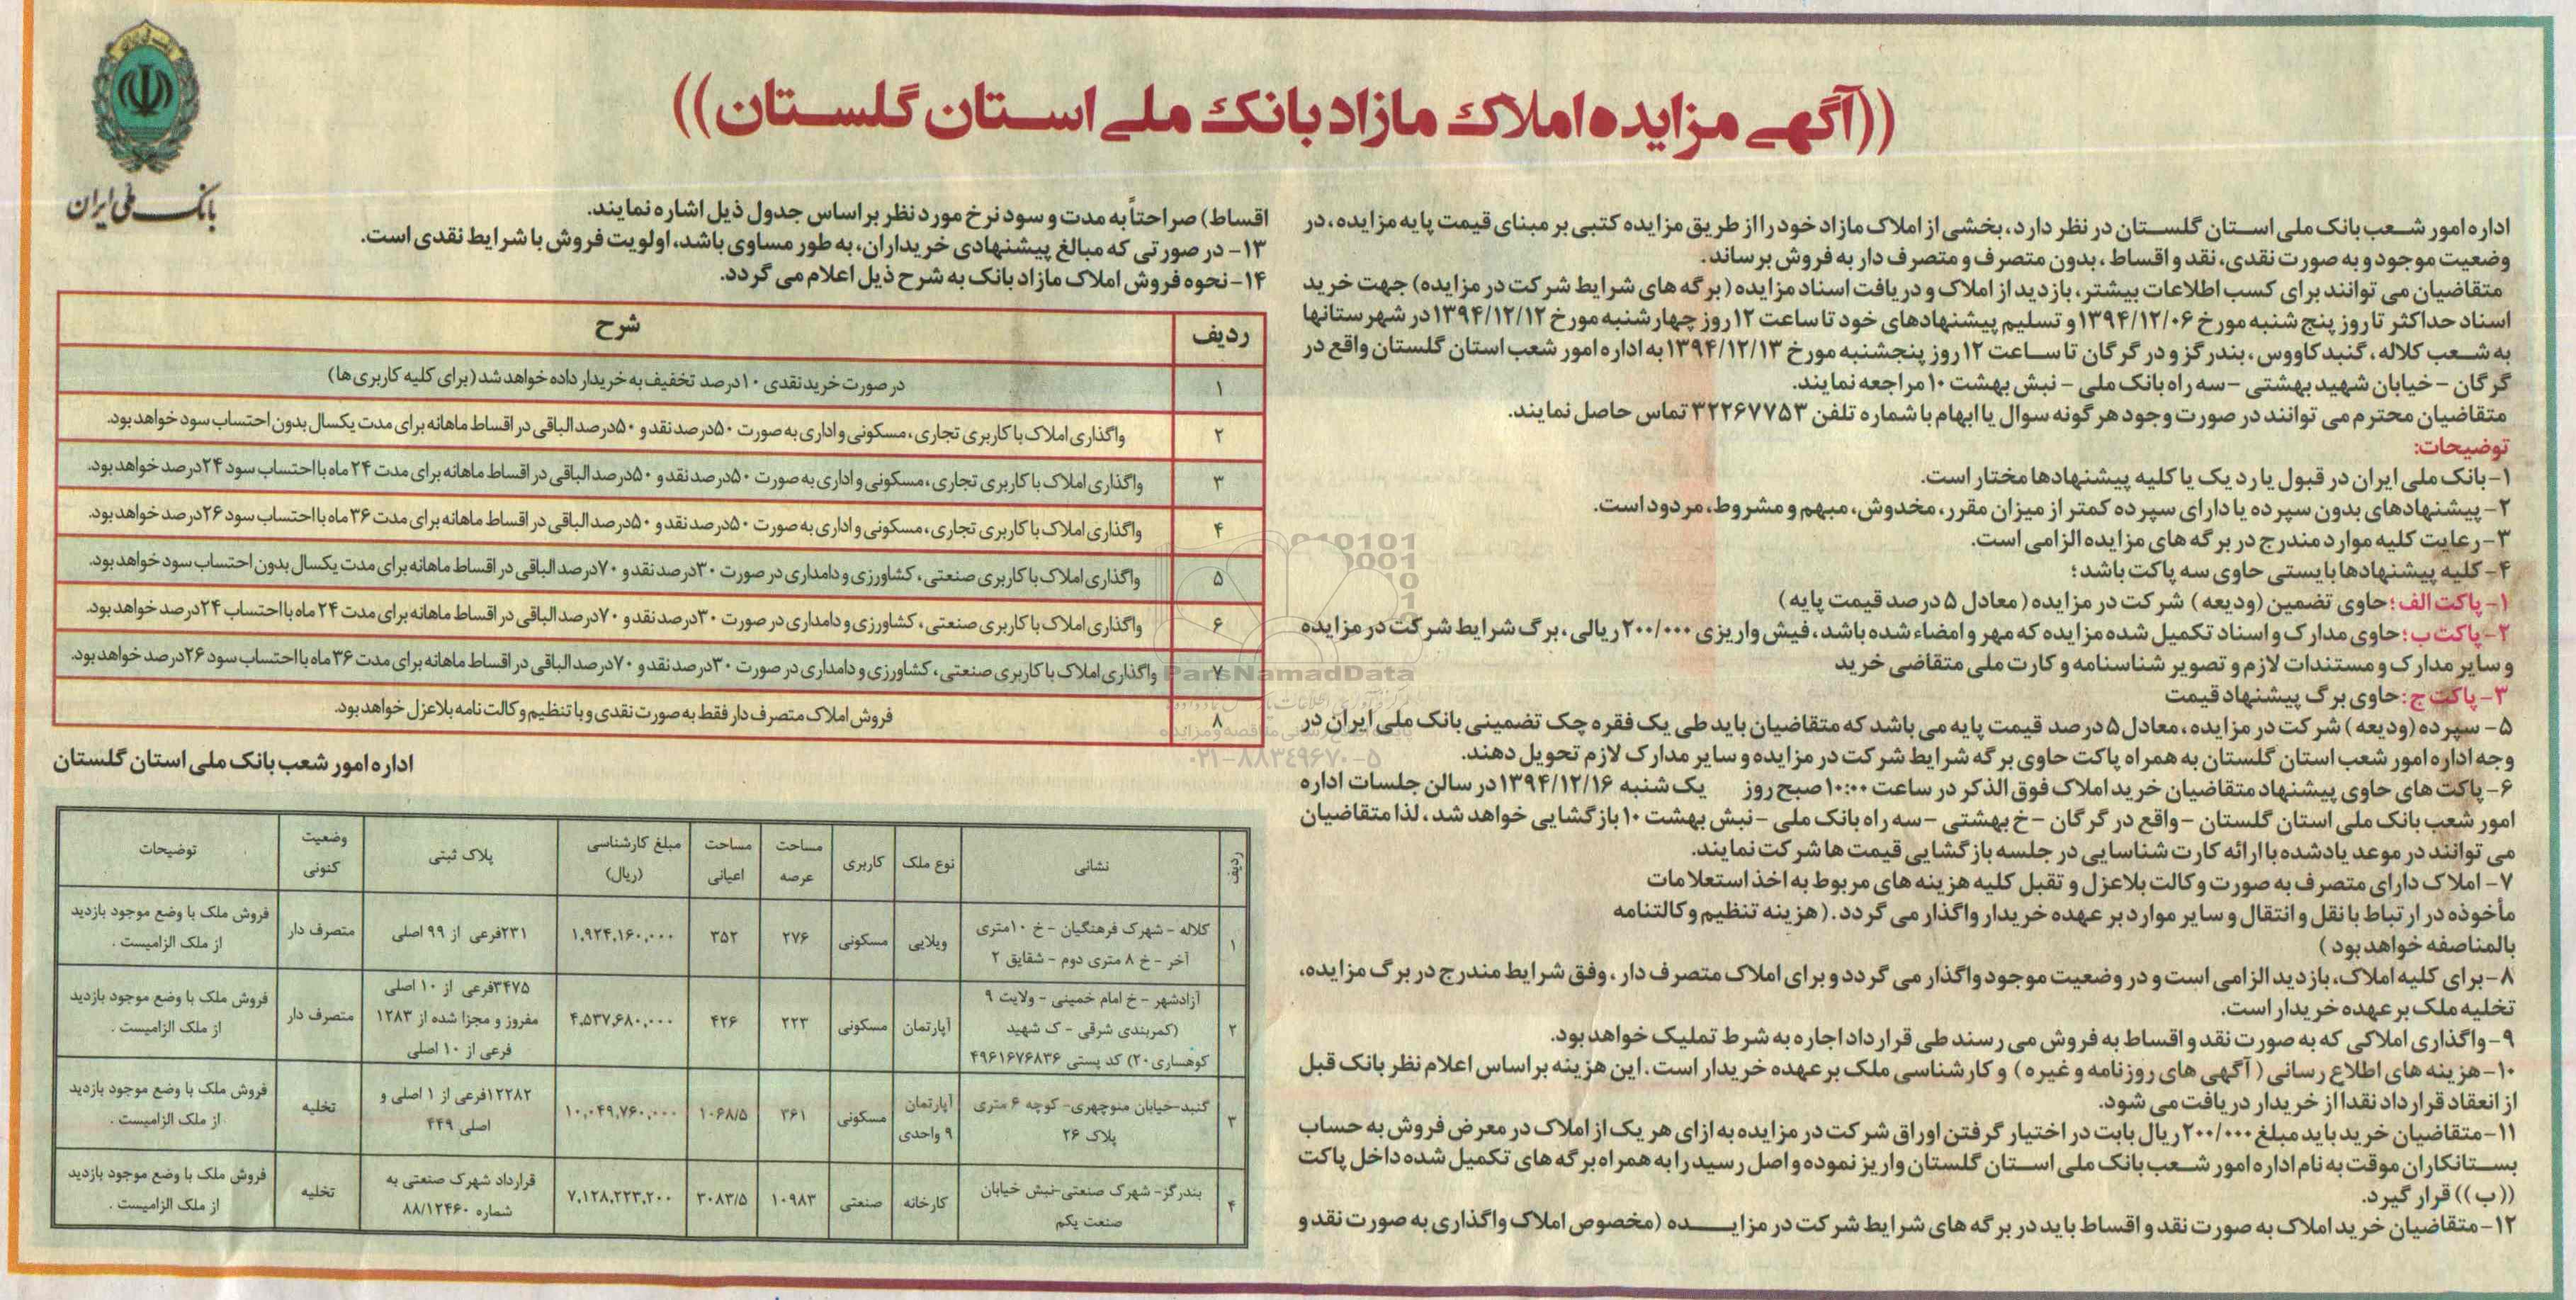 ((آگهی مزایده املاک مازاد بانک ملی استان گلستان))
بانک ملی ایران
اداره امور شعب بانک ملی استان گلستان در نظر دارد، بخشی از املاک مازاد خود را از طریق مزایده کتبی بر مبنای قیمت پایه مزایده، در
وضعیت موجود و به صورت نقدی، نقد و اقساط، بدون متصرف و متصرف دار به فروش برساند.
متقاضیان می توانند برای کسب اطلاعات بیشتر، بازدید از املاک و دریافت اسناد مزایده (برگه های شرایط شرکت در مزایده) جهت خرید
اسناد حداکثر تا روز پنج شنبه مورخ ۱۳۹۴/۱۲/۰۶ و تسلیم پیشنهادهای خود تا ساعت ۱۲ روز چهارشنبه مورخ ۱۳۹۴/۱۲/۱۲ در شهرستانها
به شعب کلاله، گنبدکاووس، بندرگز و در گرگان تا ساعت ۱۲ روز پنجشنبه مورخ ۱۳۹۴/۱۲/۱۳ به اداره امور شعب استان گلستان واقع در
گرگان – خیابان شهید بهشتی – سه راه بانک ملی – نبش بهشت ۱۰ مراجعه نمایند.
متقاضیان محترم می توانند در صورت وجود هر گونه سوال یا ابهام با شماره تلفن ۳۲۲۶۷۷۵۳ تماس حاصل نمایند.
توضیحات:
۱- بانک ملی ایران در قبول یا رد یک یا کلیه پیشنهادها مختار است.
۲- پیشنهادهای بدون سپرده یا دارای سپرده کمتر از میزان مقرر، مخدوش، مبهم و مشروط، مردود است.
۳- رعایت کلیه موارد مندرج در برگه های مزایده الزامی است.
۴- کلیه پیشنهادها بایستی حاوی سه پاکت باشد؛
۱- پاکت الف؛ حاوی تضمین (ودیعه) شرکت در مزایده (معادل ۵ درصد قیمت پایه)
۲- پاکت ب؛ حاوی مدارک و اسناد تکمیل شده مزایده که مهر و امضاء شده باشد، فیش واریزی ۲۰۰/۰۰۰ ریالی، برگ شرایط شرکت در مزایده
و سایر مدارک و مستندات لازم و تصویر شناسنامه و کارت ملی متقاضی خرید
۳- پاکت ج: حاوی برگ پیشنهاد قیمت
۵- سپرده (ودیعه) شرکت در مزایده، معادل ۵ درصد قیمت پایه می باشد که متقاضیان باید طی یک فقره چک تضمینی بانک ملی ایران در
وجه اداره امور شعب استان گلستان به همراه پاکت حاوی برگه شرایط شرکت در مزایده و سایر مدارک لازم تحویل دهند.
۶- پاکت های حاوی پیشنهاد متقاضیان خرید املاک فوق الذکر در ساعت ۱۰:۰۰ صبح روز یک شنبه ۱۳۹۴/۱۲/۱۶ در سالن جلسات اداره
امور شعب بانک ملی استان گلستان – واقع در گرگان – خ بهشتی – سه راه بانک ملی – نبش بهشت ۱۰ بازگشایی خواهد شد، لذا متقاضیان
می توانند در موعد یادشده با ارائه کارت شناسایی در جلسه بازگشایی قیمت ها شرکت نمایند.
۷- املاک دارای متصرف به صورت وکالت بلاعزل و تقبل کلیه هزینه های مربوط به اخذ استعلامات
مأخوذه در ارتباط با نقل و انتقال و سایر موارد بر عهده خریدار واگذار می گردد. (هزینه تنظیم وکالتنامه
بالمناصفه خواهد بود)
۸- برای کلیه املاک، بازدید الزامی است و در وضعیت موجود واگذار می گردد و برای املاک متصرف دار، وفق شرایط مندرج در برگ مزایده،
تخلیه ملک بر عهده خریدار است.
۹- واگذاری املاکی که به صورت نقد و اقساط به فروش می رسند طی قرارداد اجاره به شرط تملیک خواهد بود.
۱۰- هزینه های اطلاع رسانی (آگهی های روزنامه و غیره) و کارشناسی ملک بر عهده خریدار است. این هزینه بر اساس اعلام نظر بانک قبل
از انعقاد قرارداد نقدا از خریدار دریافت می شود.
۱۱- متقاضیان خرید باید مبلغ ۲۰۰/۰۰۰ ریال بابت در اختیار گرفتن اوراق شرکت در مزایده به ازای هر یک از املاک در معرض فروش به حساب
بستانکاران موقت به نام اداره امور شعب بانک ملی استان گلستان واریز نموده و اصل رسید را به همراه برگه های تکمیل شده داخل پاکت
((ب)) قرار گیرد.
۱۲- متقاضیان خرید املاک به صورت نقد و اقساط باید در برگه های شرایط شرکت در مزایده (مخصوص املاک واگذاری به صورت نقد و
اقساط) صراحتاً به مدت و سود نرخ مورد نظر بر اساس جدول ذیل اشاره نمایند.
۱۳- در صورتی که مبالغ پیشنهادی خریداران، به طور مساوی باشد، اولویت فروش با شرایط نقدی است.
۱۴- نحوه فروش املاک مازاد بانک به شرح ذیل اعلام می گردد.
ردیف شرح
۱ در صورت خرید نقدی ۱۰ درصد تخفیف به خریدار داده خواهد شد (برای کلیه کاربری ها)
۲ واگذاری املاک با کاربری تجاری، مسکونی و اداری به صورت ۵۰درصد نقد و ۵۰درصد الباقی در اقساط ماهانه برای مدت یکسال بدون احتساب سود خواهد بود.
۳ واگذاری املاک با کاربری تجاری، مسکونی و اداری به صورت ۵۰درصد نقد و ۵۰درصد الباقی در اقساط ماهانه برای مدت ۲۴ ماه با احتساب سود ۲۴درصد خواهد بود.
۴ واگذاری املاک با کاربری تجاری، مسکونی و اداری به صورت ۵۰درصد نقد و ۵۰درصد الباقی در اقساط ماهانه برای مدت ۳۶ ماه با احتساب سود ۲۶درصد خواهد بود.
۵ واگذاری املاک با کاربری صنعتی، کشاورزی و دامداری در صورت ۳۰درصد نقد و ۷۰درصد الباقی در اقساط ماهانه برای مدت یکسال بدون احتساب سود خواهد بود.
۶ واگذاری املاک با کاربری صنعتی، کشاورزی و دامداری در صورت ۳۰درصد نقد و ۷۰درصد الباقی در اقساط ماهانه برای مدت ۲۴ ماه با احتساب ۲۴درصد خواهد بود.
۷ واگذاری املاک با کاربری صنعتی، کشاورزی و دامداری در صورت ۳۰درصد نقد و ۷۰درصد الباقی در اقساط ماهانه برای مدت ۳۶ ماه با احتساب سود ۲۶درصد خواهد بود.
۸ فروش املاک متصرف دار فقط به صورت نقدی و با تنظیم وکالت نامه بلاعزل خواهد بود.
اداره امور شعب بانک ملی استان گلستان
ردیف نشانی نوع ملک کاربری مساحت عرصه مساحت اعیانی مبلغ کارشناسی (ریال) پلاک ثبتی وضعیت کنونی توضیحات
۱ کلاله - شهرک فرهنگیان - خ ۱۰متری آخر - خ ۸ متری دوم - شقایق ۲ ویلایی مسکونی ۲۷۶ ۳۵۲ ۱,۹۲۴,۱۶۰,۰۰۰ ۲۳۱فرعی از ۹۹ اصلی متصرف دار فروش ملک با وضع موجود بازدید از ملک الزامیست .
۲ آزادشهر - خ امام خمینی - ولایت ۹ (کمربندی شرقی - ک شهید کوهساری ۲۰) کد پستی ۴۹۶۱۶۷۶۸۳۶ آپارتمان مسکونی ۲۲۳ ۴۲۶ ۴,۵۳۷,۶۸۰,۰۰۰ ۳۴۷۵فرعی از ۱۰ اصلی مفروز و مجزا شده از ۱۲۸۳ فرعی از ۱۰ اصلی متصرف دار فروش ملک با وضع موجود بازدید از ملک الزامیست .
۳ گنبد-خیابان منوچهری- کوچه ۶ متری پلاک ۲۶ آپارتمان ۹ واحدی مسکونی ۳۶۱ ۱۰۶۸/۵ ۱۰,۰۴۹,۷۶۰,۰۰۰ ۱۲۲۸۲فرعی از ۱ اصلی و اصلی ۴۴۹ تخلیه فروش ملک با وضع موجود بازدید از ملک الزامیست .
۴ بندرگز- شهرک صنعتی-نبش خیابان صنعت یکم کارخانه صنعتی ۱۰۹۸۳ ۳۰۸۳/۵ ۷,۱۲۸,۲۲۳,۲۰۰ قرارداد شهرک صنعتی به شماره ۸۸/۱۲۴۶۰ تخلیه فروش ملک با وضع موجود بازدید از ملک الزامیست .
ParsNamadData
۰۲۱-۸۸۳۴۹۶۷۰-۵